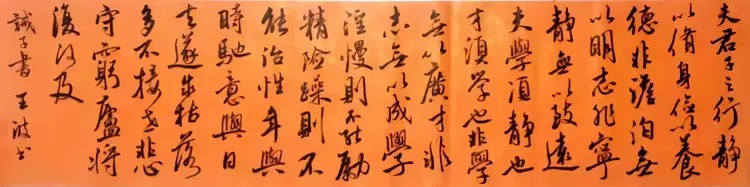 夫君子之行静
以脩身俭以養
德非澹泊無
以明志非寧
静無以致遠
夫學須静也
才須学也非學
無以廣才非
志無以成學
淫慢則不能勵
精险躁則不
能治性年與
時馳意與日
去遂成枯落
多不接世悲
守窮廬將
復何及
誡子書 王波书